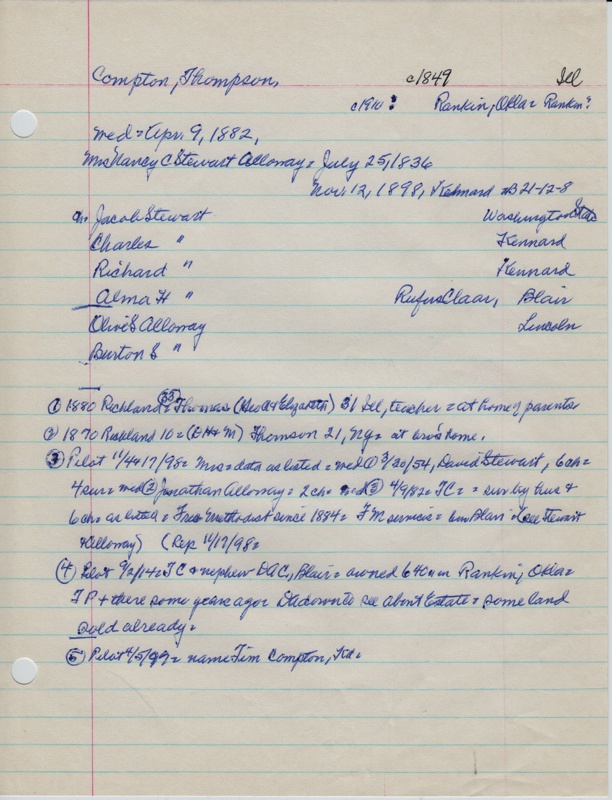 Compton, Thompson, c1849 Ill
c1910? Rankin, Okla = Rankin?
med = Apr. 9, 1882,
Mrs Nancy C Stewart Alloway = July 25, 1836
Nov. 12, 1898, Kennard = B 21-12-8
ch = Jacob Stewart Washington State
Charles " Kennard
Richard " Kennard
Alma H " Rufus Claar, Blair
Olive S Alloway Lincoln
Burton S "
① 1880 Richland 35 = Thomas (Geo A & Elizabeth) 31 Ill, teacher = at home of parents
② 1870 Richland 10 = Thomson 21, Ng = at bros home.
③ Pilot 11/4 & 17/98 = Mrs = data as listed = med ① 3/20/54, David Stewart, 6 ch =
4 sur = med ② Jonathan Alloway = 2 ch = med ③ 4/9/82 = TC = = surv by hus &
6 ch = as listed = Free Methodist since 1894 = FM services = bur Blair = (see Stewart
& Alloway) (Rep 11/17/98 =
④ Pilot 9/2/14 = TC & nephew DAC, Blair = owned 640 in Rankin, Okla =
TP + there some years ago = DA down to see about Estate = some land
sold already =
⑤ Pilot 4/5/99 = name Tim Compton, Kd =